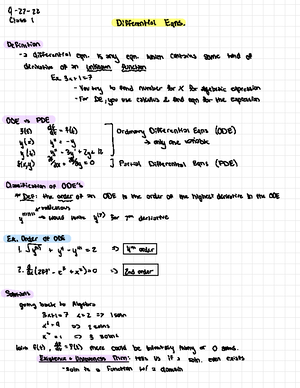 9-27-22
Class 1
Differential Eqns.
Definition
- a differential eqn. is any eqn. which contains some kind of
derivative of an unknown function
Ex. 3x+1=7
- You try to find number for X for algebraic expression
- For DE, you use calculus & find eqn for the expression
ODE vs PDE
Ordinary Differential Eqns (ODE)
→ only one variable
Partial Differential Eqns (PDE)
Classification of ODE's
* Def: the order of an ODE is the order of the highest derivative in the ODE
would write y⁽⁷⁾ for 7th derivative
Ex. Order of ODE
=> 4th order
=> 2nd order
Solutions
going back to Algebra
3x+1=7 x=2 => 1 soln
x²=9 => 2 solns
=> 3 solns
there could be infinitely many or 0 solns.
Existence + Uniqueness Thm: tells us if a soln. even exists
- soln is a function w/ a domain